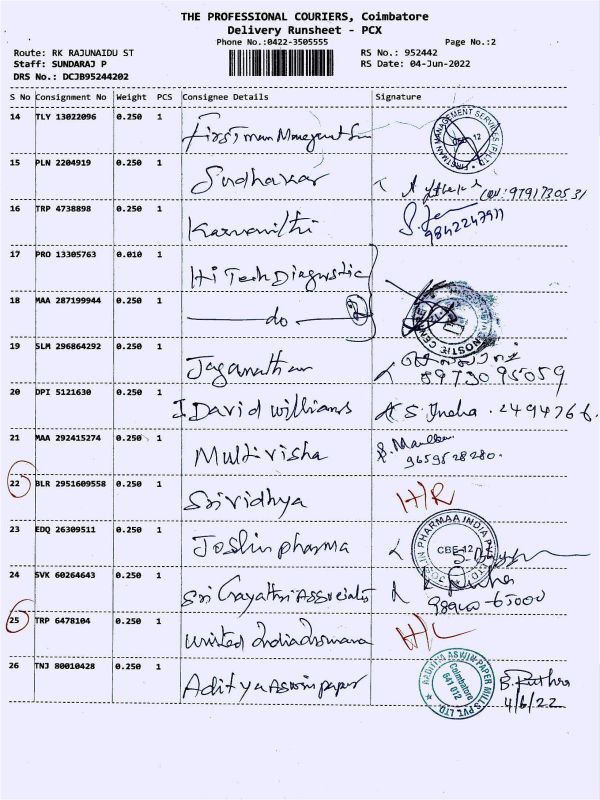 THE PROFESSIONAL COURIERS, Coimbatore
Delivery Runsheet - PCX
Phone No.:0422-3505555 Page No.:2
Route: RK RAJUNAIDU ST RS No.: 952442
Staff: SUNDARAJ P RS Date: 04-Jun-2022
DRS No.: DCJB95244202
S No Consignment No Weight PCS Consignee Details Signature
14 TLY 13022096 0.250 1 Firstman FIRSTMAN MANAGEMENT SERVICES (P) LTD
15 PLN 2204919 0.250 1 Sudhakar 9791730531
16 TRP 4738898 0.250 1 9842247911
17 PRO 13305763 0.010 1 Hi Tech Diagnostic
18 MAA 287199944 0.250 1 do
19 SLM 296864292 0.250 1 Jaganathan 8973095059
20 DPI 5121630 0.250 1 I David williams 2494766.
21 MAA 292415274 0.250 1 Multivisha 9659528280.
22 BLR 2951609558 0.250 1 Srividhya H/R
23 EDQ 26309511 0.250 1 Joslin pharma JOSLIN PHARMAA INDIA PVT. LTD. CBE-12
24 SVK 60264643 0.250 1 Sri Gayathri Associates 98940-65000
25 TRP 6478104 0.250 1 United India H/L
26 TNJ 80010428 0.250 1 Aditya Aswin paper AADITYA ASWIN PAPER MILLS PVT. LTD. Coimbatore 641 012
4/6/22